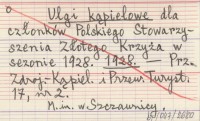 Ulgi kąpielowe dla
członków Polskiego Stowarzy-
szenia Złotego Krzyża w
sezonie 1928. 1928. — Prz.
Zdroj.-Kąpiel. i Przew. Turyst.
17, nr 2.
M. in. w Szczawnicy.